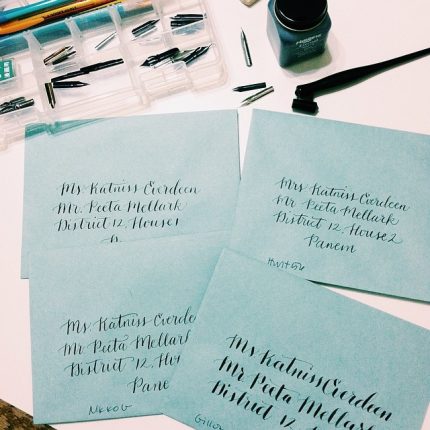 Ms Katniss Everdeen
Mr. Peeta Mellark
District 12, House 1
Mrs Katniss Everdeen
Mr Peeta Mellark
District 12, House 2
Panem
Ms. Katniss Everde
Mr Peeta Mellark
District 12, Ho
Pane
Nikko G
Ms Katniss Everdeen
Mr Peeta Mellark
District 12,